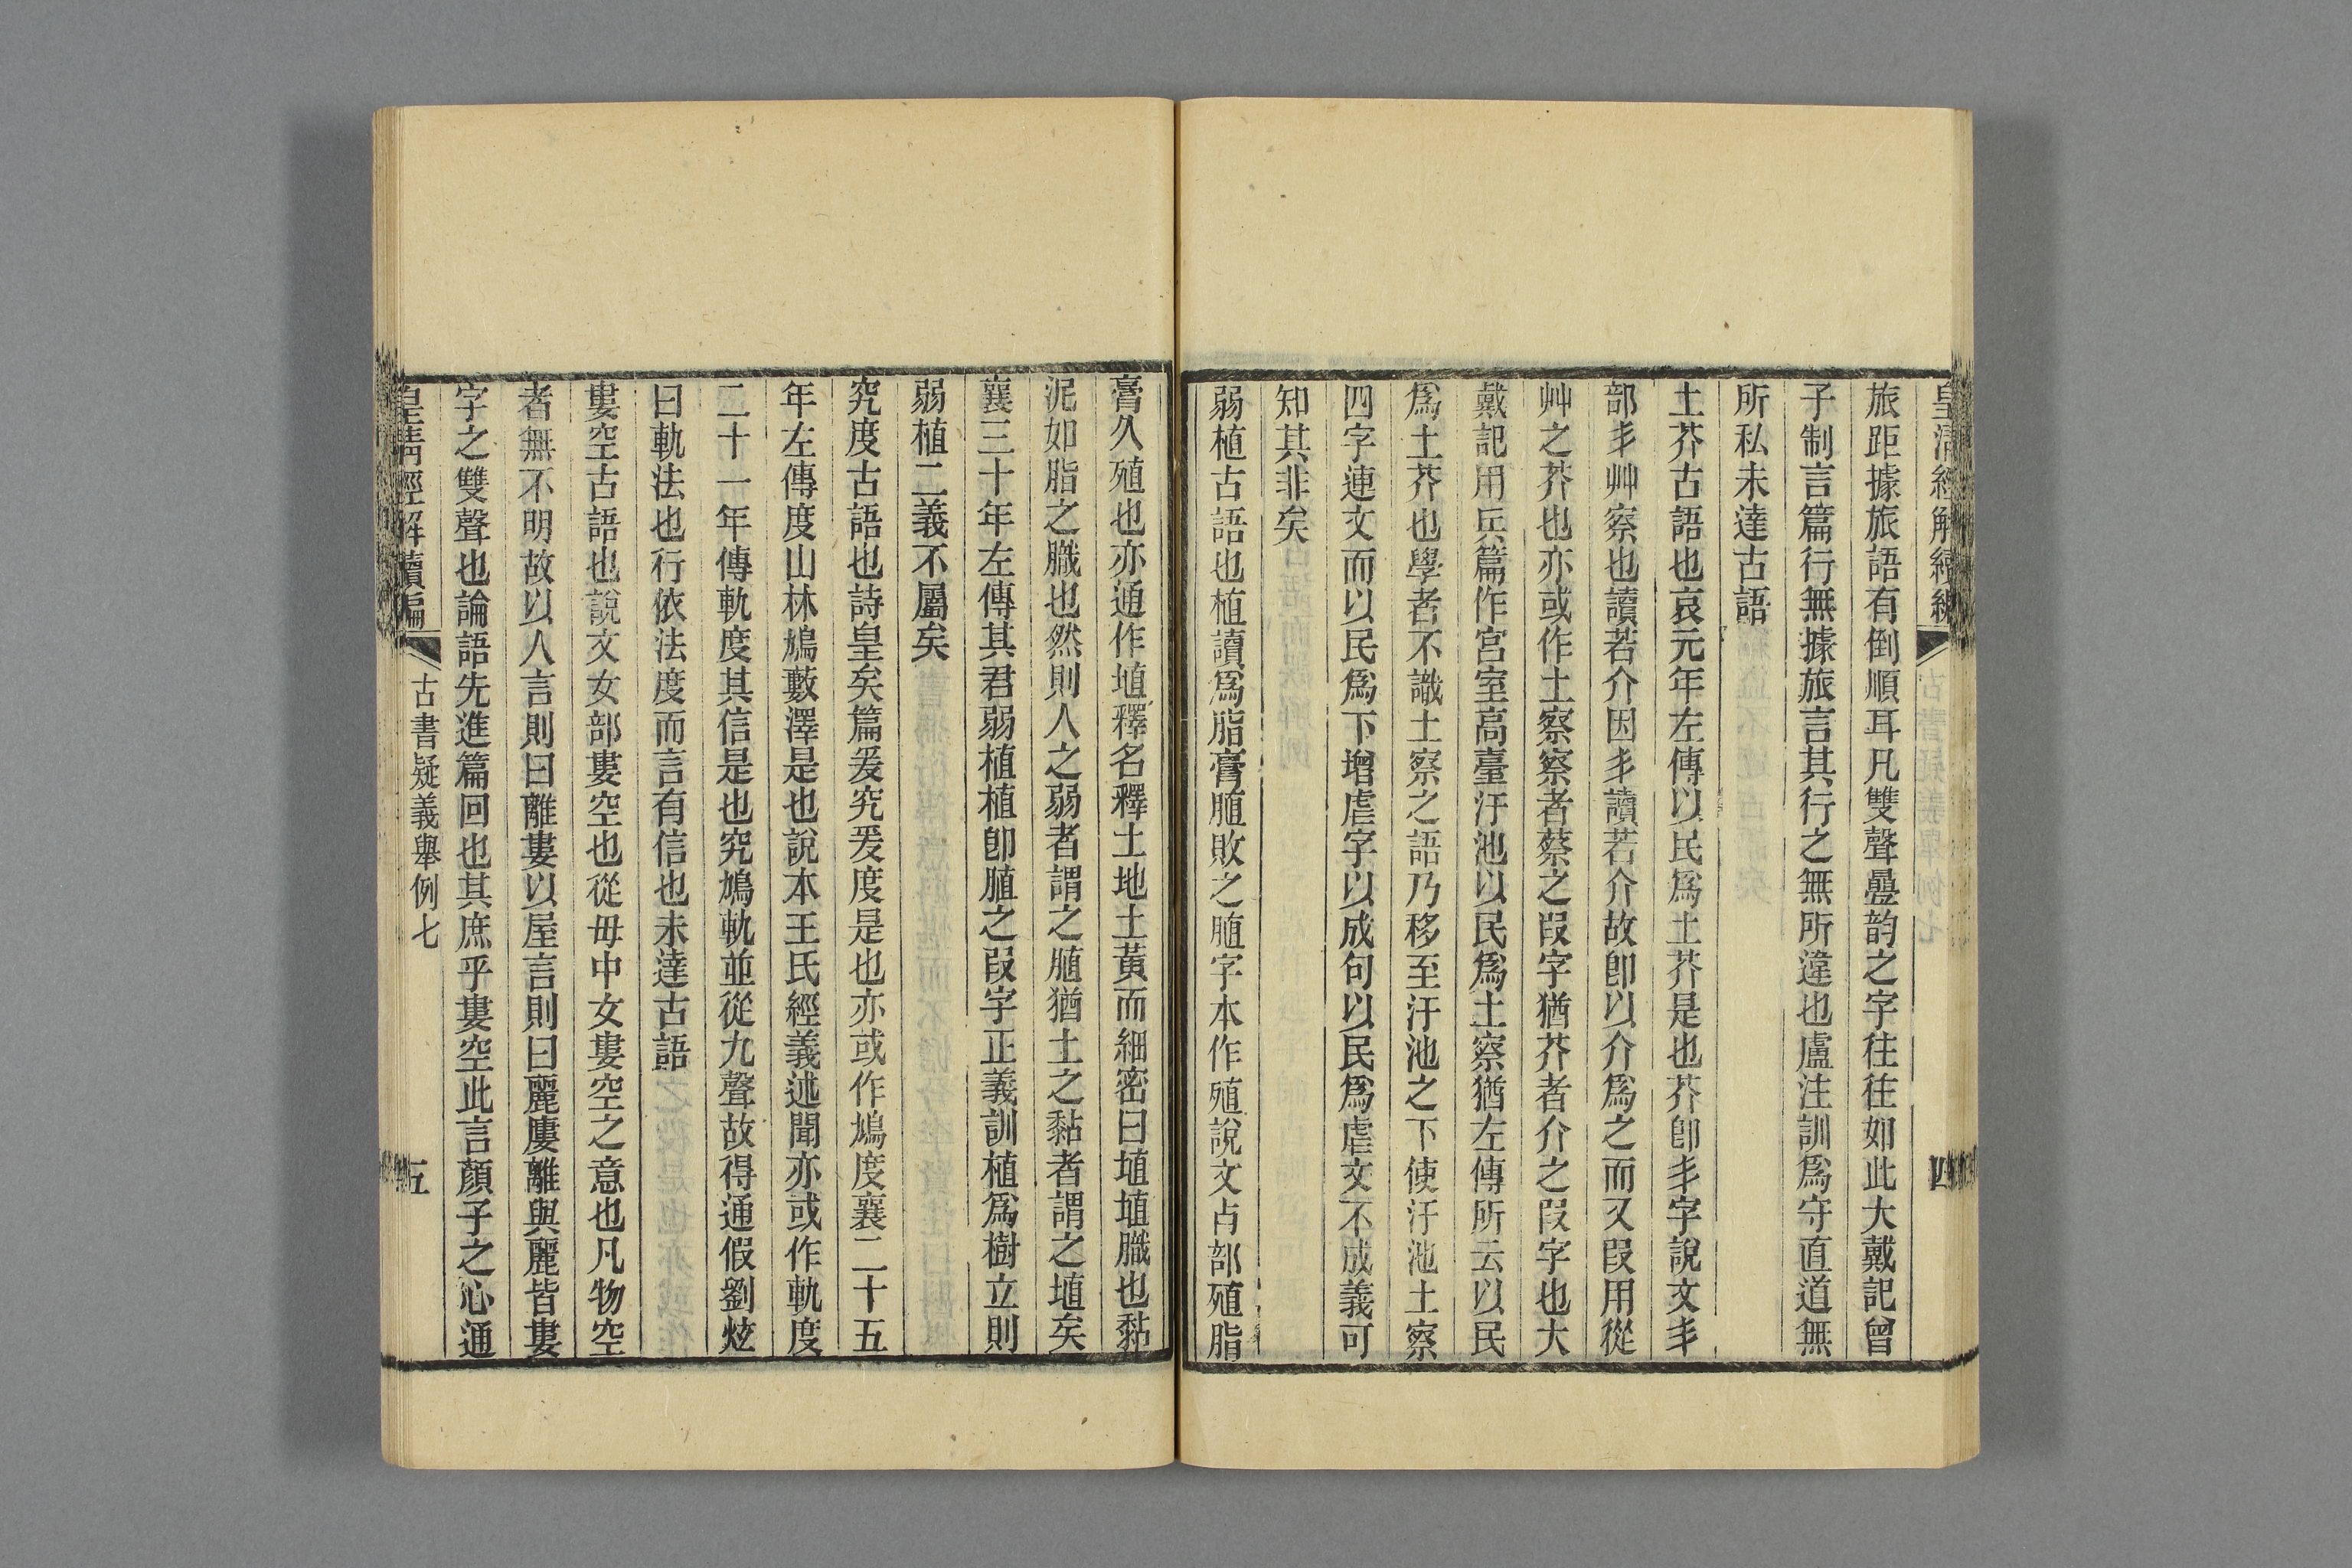 皇清經解續編
四
旅距據旅語有倒順耳凡雙聲曡韵之字往往如此大戴記曾
子制言篇行無據旅言其行之無所違也盧注訓爲守直道無
所私未達古語
土芥古語也哀元年左傳以民爲土芥是也芥卽丯字說文丯
部丯艸察也讀若介因丯讀若介故卽以介爲之而又叚用從
艸之芥也亦或作土察察者蔡之叚字猶芥者介之叚字也大
戴記用兵篇作宮室高臺汙池以民爲土察猶左傳所云以民
爲土芥也學者不識土察之語乃移至汙池之下使汙池土察
四字連文而以民爲下增虐字以成句以民爲虐文不成義可
知其非矣
弱植古語也植讀爲脂膏脜敗之脜字本作殖說文歺部殖脂
膏久殖也亦通作埴釋名釋土地土黃而細密曰埴埴膱也黏
泥如脂之膱也然則人之弱者謂之脜猶土之黏者謂之埴矣
襄三十年左傳其君弱植植卽脜之叚字正義訓植爲樹立則
弱植二義不屬矣
究度古語也詩皇矣篇爰究爰度是也亦或作鳩度襄二十五
年左傳度山林鳩藪澤是也說本王氏經義述聞亦或作軌度
二十一年傳軌度其信是也究鳩軌並從九聲故得通假劉炫
曰軌法也行依法度而言有信也未達古語
婁空古語也說文女部婁空也從毋中女婁空之意也凡物空
者無不明故以人言則曰離婁以屋言則曰麗廔離與麗皆婁
字之雙聲也論語先進篇回也其庶乎婁空此言顏子之心通
皇清經解續編
古書疑義舉例七
五